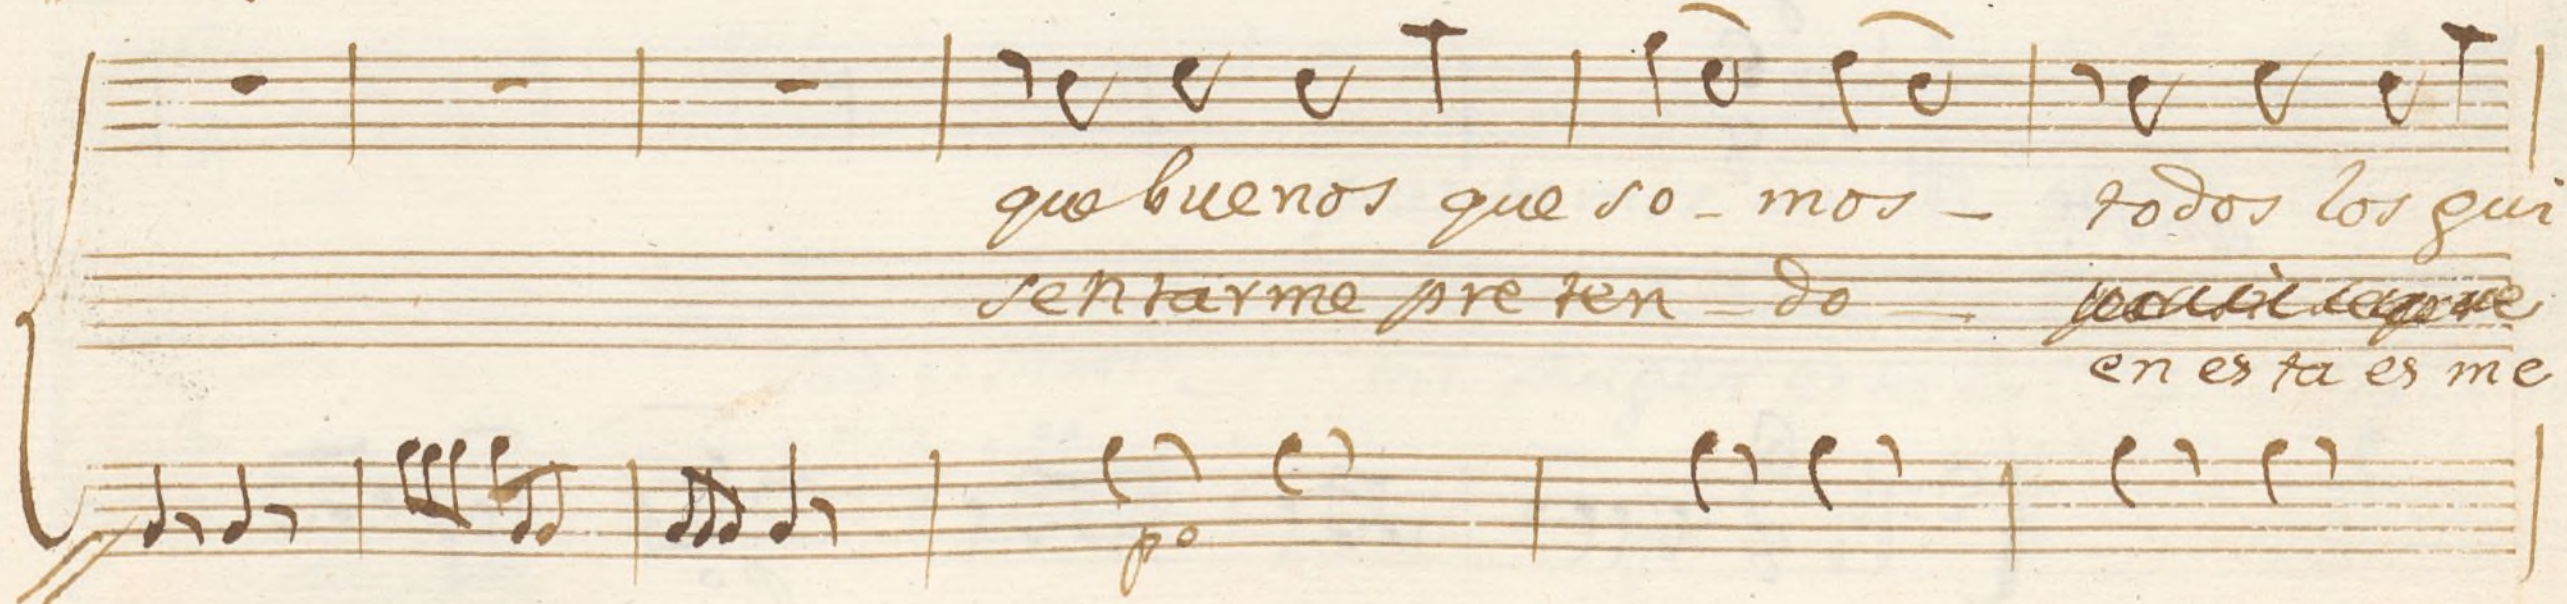 que buenos que so - mos - todos los gui
sentarme pre ten - do -
en es ta es me
po